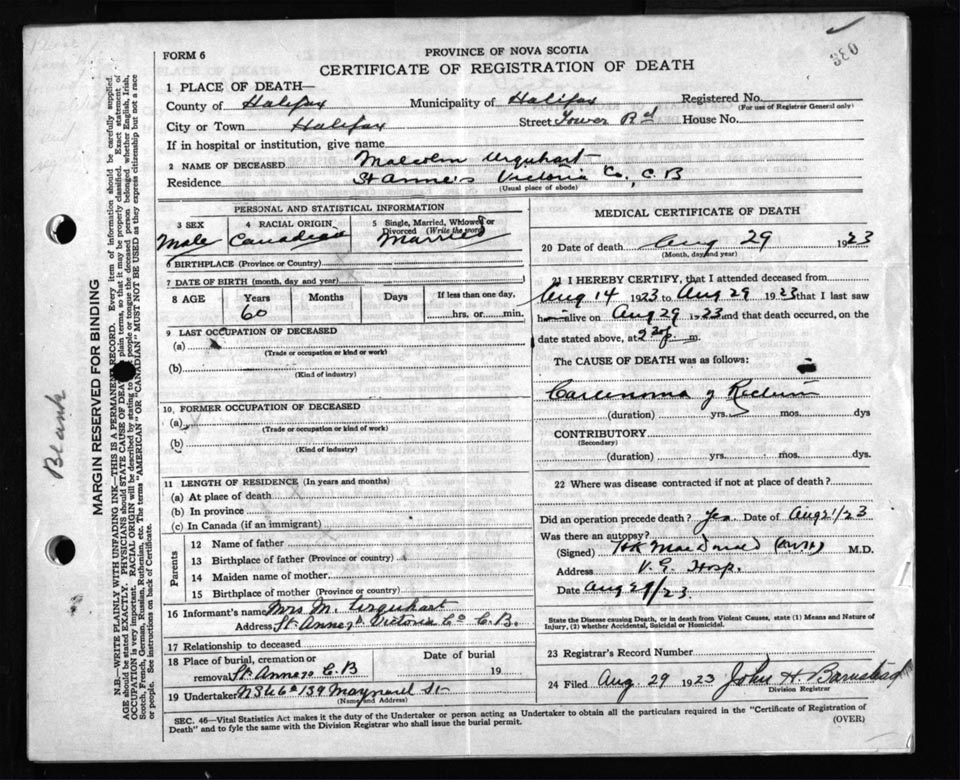 FORM 6
PROVINCE OF NOVA SCOTIA
CERTIFICATE OF REGISTRATION OF DEATH
330
1 PLACE OF DEATH—
County of Halifax Municipality of Halifax Registered No.
(For use of Registrar General only)
City or Town Halifax Street Tower Rd House No.
If in hospital or institution, give name
2 NAME OF DECEASED Malcolm Urquhart
Residence St Anne's Victoria Co, C B
(Usual place of abode)
PERSONAL AND STATISTICAL INFORMATION
3 SEX
Male
4 RACIAL ORIGIN
Canadian
5 Single, Married, Widowed or Divorced (Write the word)
Married
6 BIRTHPLACE (Province or Country)
7 DATE OF BIRTH (month, day and year)
8 AGE Years Months Days If less than one day,
60 hrs. or min.
9 LAST OCCUPATION OF DECEASED
(a)
(Trade or occupation or kind or work)
(b)
(Kind of industry)
10. FORMER OCCUPATION OF DECEASED
(a)
(Trade or occupation or kind of work)
(b)
(Kind of industry)
11 LENGTH OF RESIDENCE (In years and months)
(a) At place of death
(b) In province
(c) In Canada (if an immigrant)
Parents
12 Name of father
13 Birthplace of father (Province or country)
14 Maiden name of mother
15 Birthplace of mother (Province or country)
16 Informant's name Mrs M. Urquhart
Address St. Anne's Victoria Co C.B.
17 Relationship to deceased
18 Place of burial, cremation or Date of burial
removal St. Annes C B 19
19 Undertaker 139 Maynard St
(Name and Address)
MEDICAL CERTIFICATE OF DEATH
20 Date of death Aug 29 1923
(Month, day and year)
21 I HEREBY CERTIFY, that I attended deceased from
Aug 14 1923 to Aug 29 1923 that I last saw
h alive on Aug 29 1923 and that death occurred, on the
date stated above, at m.
The CAUSE OF DEATH was as follows:
Carcinoma of Rectum
(duration) yrs. mos. dys
CONTRIBUTORY
(Secondary)
(duration) yrs. mos. dys.
22 Where was disease contracted if not at place of death?
Did an operation precede death? Yes. Date of Aug 21/23
Was there an autopsy?
(Signed) H K MacDonald M.D.
Address V. G. Hosp.
Date Aug 29/23.
State the Disease causing Death, or in death from Violent Causes, state (1) Means and Nature of
Injury, (2) whether Accidental, Suicidal or Homicidal.
23 Registrar's Record Number
24 Filed Aug. 29 1923 John H. Barnstead
Division Registrar
SEC. 46—Vital Statistics Act makes it the duty of the Undertaker or person acting as Undertaker to obtain all the particulars required in the "Certificate of Registration of
Death" and to fyle the same with the Division Registrar who shall issue the burial permit.
(OVER)
Blank
MARGIN RESERVED FOR BINDING
N.B.—WRITE PLAINLY WITH UNFADING INK—THIS IS A PERMANENT RECORD. Every item of information should be carefully supplied.
AGE should be stated EXACTLY. PHYSICIANS should STATE CAUSE OF DEATH plain terms, so that it may be properly classified. Exact statement of
OCCUPATION is very important. RACIAL ORIGIN will be described by stating to people or tongue the deceased person belonged whether English, Irish,
Scotch, French, German, Russian, Ruthenian, etc. The terms "AMERICAN" OR "CANADIAN" MUST NOT BE USED as they express citizenship but not a race
or people. See instructions on back of Certificate.